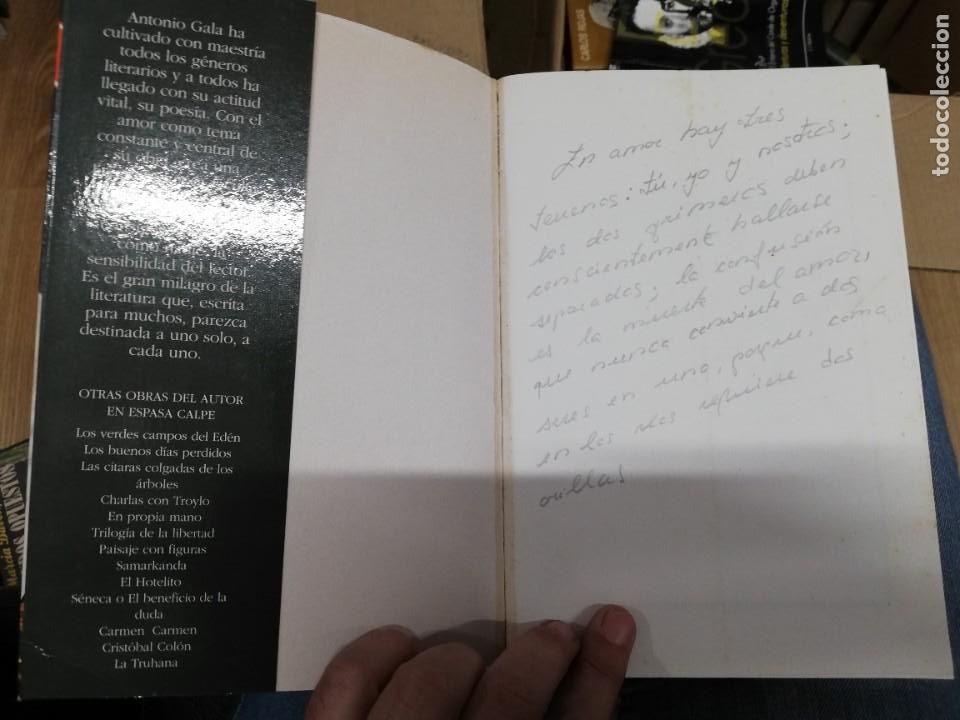 Antonio Gala ha
cultivado con maestría
todos los géneros
literarios y a todos ha
llegado con su actitud
vital, su poesía. Con el
amor como tema
constante y central de
su obra una
como la
sensibilidad del lector.
Es el gran milagro de la
literatura que, escrita
para muchos, parezca
destinada a uno solo, a
cada uno.
OTRAS OBRAS DEL AUTOR
EN ESPASA CALPE
Los verdes campos del Edén
Los buenos días perdidos
Las cítaras colgadas de los
árboles
Charlas con Troylo
En propia mano
Trilogía de la libertad
Paisaje con figuras
Samarkanda
El Hotelito
Séneca o El beneficio de la
duda
Carmen Carmen
Cristóbal Colón
La Truhana
En amor hay tres
tenenos: tú, yo y nosotros;
los dos primeros deben
conscientemente hallarse
separados; la confusión
es la muerte del amor,
que nunca convierte a dos
seres en uno, porque, como
en los ríos requiere dos
orillas
todocoleccion
CARLOS ROJAS